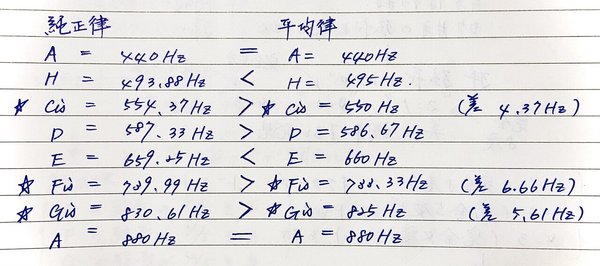 純正律 平均律
A = 440Hz = A = 440Hz
H = 493.88Hz < H = 495Hz.
☆ Cis = 554.37Hz > ☆ Cis = 550Hz (差 4.37Hz)
D = 587.33Hz > D = 586.67Hz
E = 659.25Hz < E = 660Hz
☆ Fis = 739.99Hz > ☆ Fis = 733.33Hz (差 6.66Hz)
☆ Gis = 830.61Hz > ☆ Gis = 825Hz (差 5.61Hz)
A = 880Hz = A = 880Hz